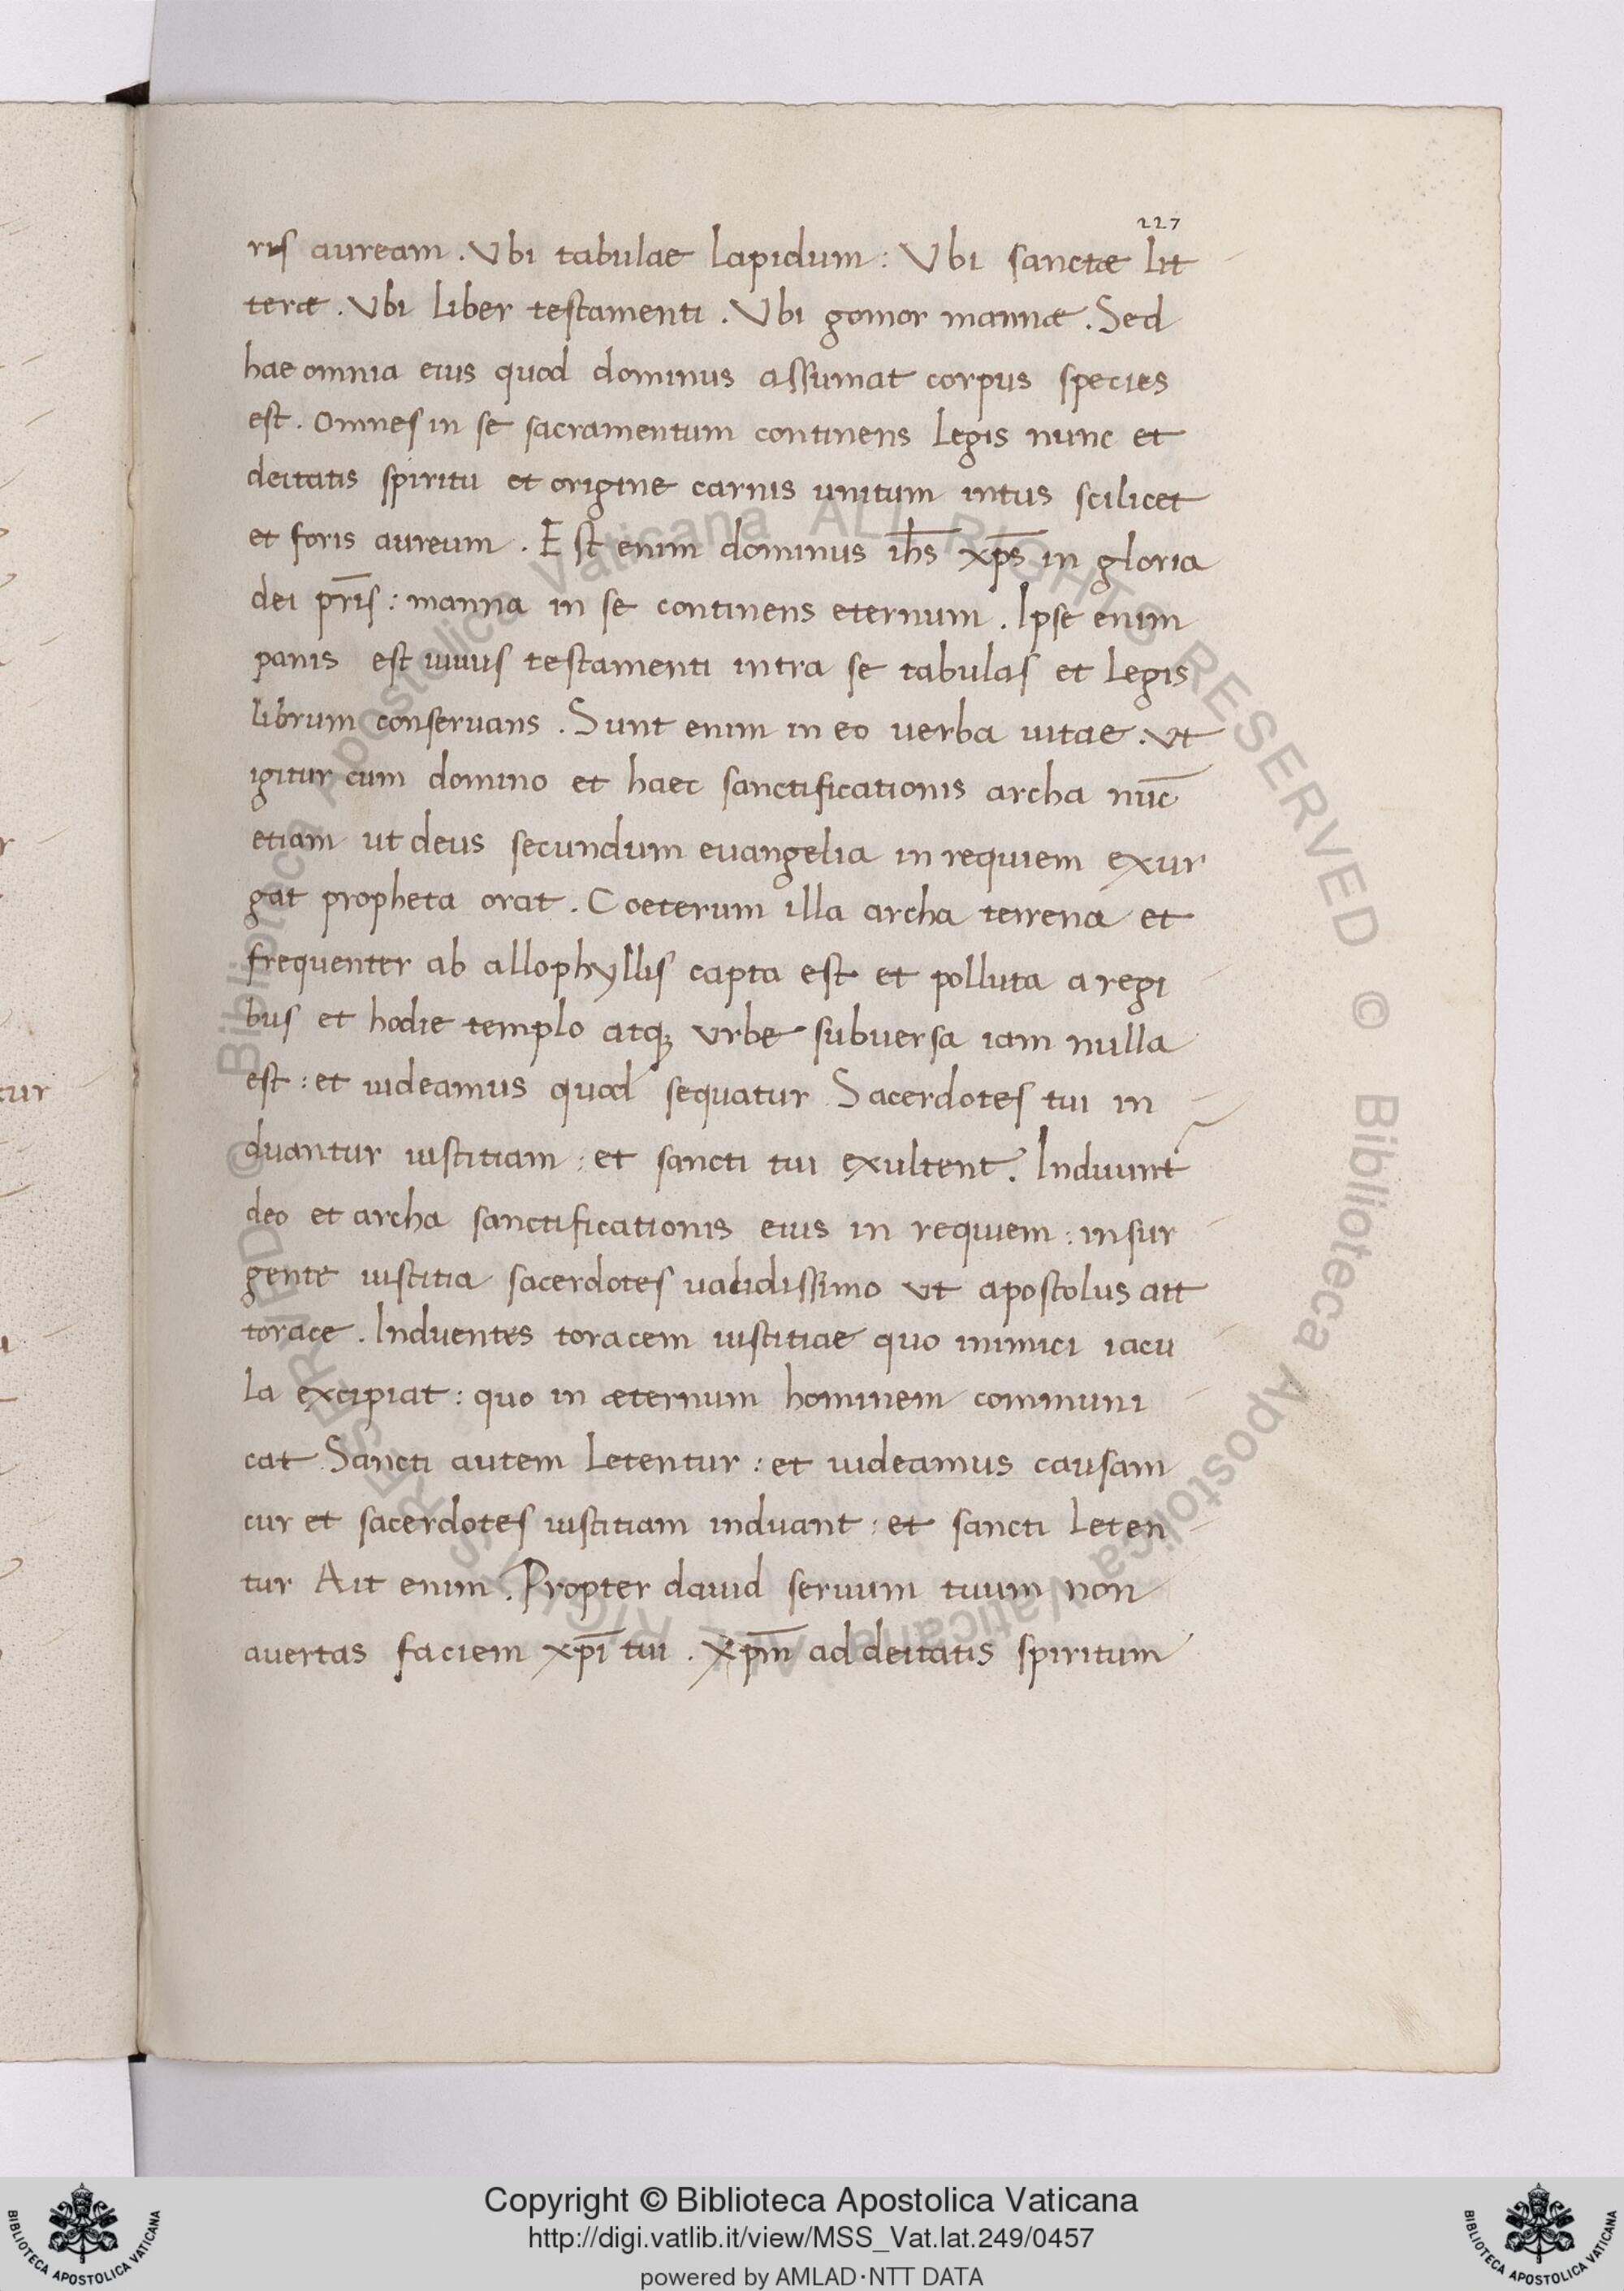 227
ris auream . Vbi tabulae lapidum : Vbi sanctæ lit
teræ . Vbi liber testamenti . Vbi gomor mannæ . Sed
hae omnia eius quod dominus assumat corpus species
est . omnes in se sacramentum continens legis nunc et
deitatis spiritu et origine carnis unitum intus scilicet
et foris aureum . Est enim dominus ihs̄ xp̄s in gloria
dei pr̄is : manna in se continens eternum . Ipse enim
panis est uiuus testamenti intra se tabulas et legis
librum conseruans . Sunt enim in eo uerba uitae . vt
igitur cum domino et haec sanctificationis archa nūc
etiam ut deus secundum euangelia in requiem exur
gat propheta orat . Coeterum illa archa terrena et
frequenter ab allophyllis capta est et polluta a regi
bus et hodie templo atq; vrbe subuersa iam nulla
est : et uideamus quod sequatur Sacerdotes tui in
duantur iustitiam : et sancti tui exultent . Induunt
deo et archa sanctificationis eius in requiem : insur
gente iustitia sacerdotes ualidissimo vt apostolus ait
torace . Induentes toracem iustitiae quo inimici iacu
la excipiat : quo in æternum hominem communi
cat Sancti autem letentur : et uideamus causam
cur et sacerdotes iustitiam induant : et sancti leten
tur Ait enim . Propter dauid seruum tuum non
auertas faciem xp̄i tui . Xp̄m ad deitatis spiritum
© Biblioteca Apostolica Vaticana ALL RIGHTS RESERVED © Biblioteca Apostolica Vaticana ALL RIGHTS RESERVED
Copyright © Biblioteca Apostolica Vaticana
http://digi.vatlib.it/view/MSS_Vat.lat.249/0457
powered by AMLAD·NTT DATA
BIBLIOTECA APOSTOLICA VATICANA
BIBLIOTECA APOSTOLICA VATICANA